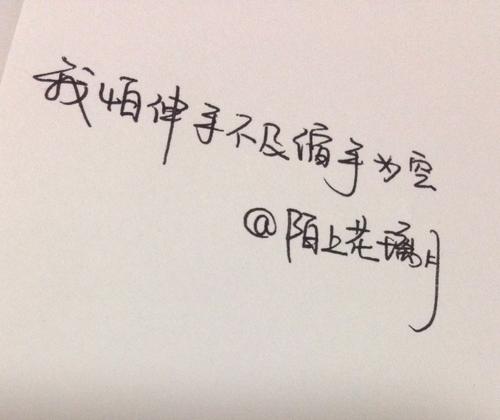 我怕伸手不及缩手为空
@陌上花璃月